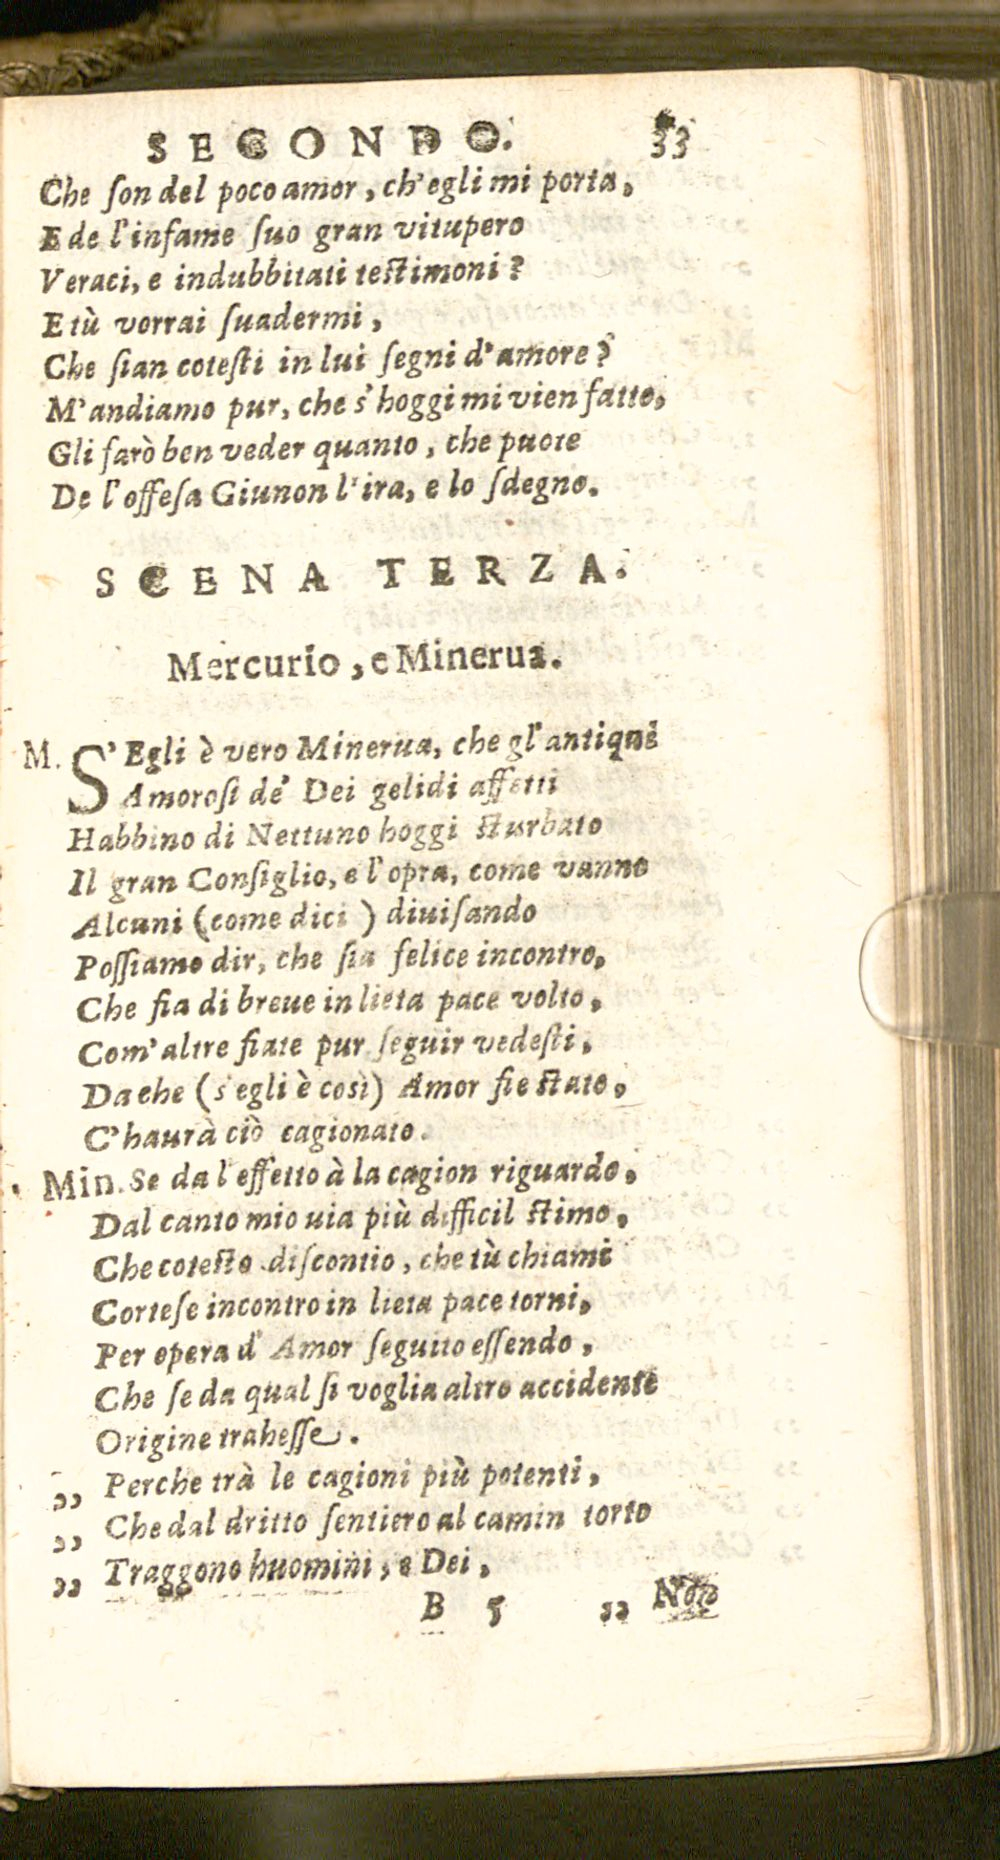 SECONDO. 33
Che ſon del poco amor, ch'egli mi porta,
E de l'infame ſuo gran vitupero
Veraci, e indubbitati teſtimoni?
E tù vorrai ſuadermi,
Che ſian coteſti in lui ſegni d'amore?
M'andiamo pur, che s'hoggi mi vien fatto,
Gli farò ben veder quanto, che puote
De l'offeſa Giunon l'ira, e lo ſdegno.
SCENA TERZA.
Mercurio, e Minerua.
M. S'Egli è vero Minerua, che gl'antiqui
Amoroſi de' Dei gelidi affetti
Habbino di Nettuno hoggi ſturbato
Il gran Conſiglio, e l'opra, come vanno
Alcuni (come dici) diuiſando
Poſſiamo dir, che ſia felice incontro,
Che fia di breue in lieta pace volto,
Com'altre fiate pur ſeguir vedeſti,
Da che (s'egli è così) Amor fie ſtato,
C'haurà ciò cagionato.
Min. Se da l'effetto à la cagion riguardo,
Dal canto mio uia più difficil ſtimo,
Che coteſto diſcontio, che tù chiami
Corteſe incontro in lieta pace torni,
Per opera d'Amor ſeguito eſſendo,
Che ſe da qual ſi voglia altro accidente
Origine traheſſe.
„ Perche trà le cagioni più potenti,
„ Che dal dritto ſentiero al camin torto
„ Traggono huomini, e Dei,
B 5 „ Non